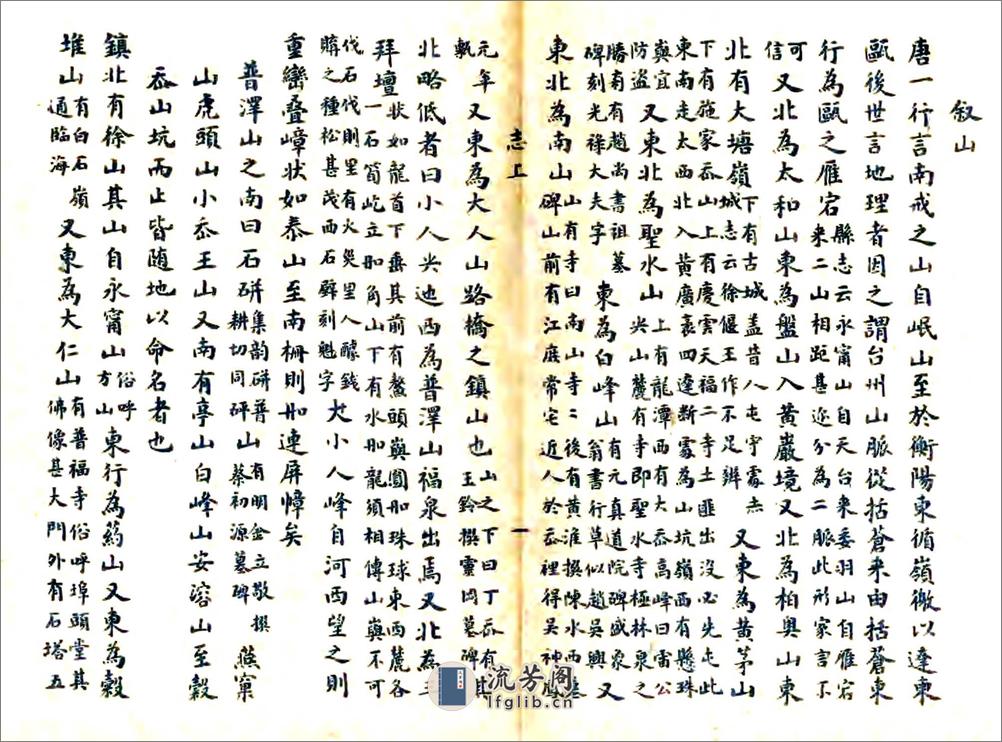 叙山
唐一行言南戒之山自岷山至於衡陽東循嶺徼以達東
甌後世言地理者因之謂台州山脈從括蒼来由括蒼東
行為甌之雁宕縣志云永甯山自天台来委羽山自雁宕来二山相距甚迩分為二脈此形家言不
可信又北為太和山東為盤山入黄巖境又北為柏奥山東
北有大塘嶺下有古城盖昔人屯守處赤城志云徐偃王作不足辨又東為黄茅山
下有施家岙山上有慶雲天福二寺土匪出没必先屯此東南走太西北入黄廣袤四達斯處為山坑嶺西有懸珠
與宜防盗又東北為聖水山上有龍潭西有大岙高峰曰雷公尖山麓有寺即聖水寺極林泉之
勝前有趙尚書祖墓碑刻光禄大夫字東為白峰山有元真道院碑盛象翁書行草似趙吴興又
東北為南山山有寺曰南山寺二後有黄淮撰陳水西墓碑山前有江庭常宅近人於岙裡得吴神鳳
志上
一
元年甎又東為大人山路橋之鎮山也山之下曰丁岙有其王鈴撰靈岡墓碑
北略低者曰小人尖迆西為普澤山福泉出焉又北為三
拜壇狀如龍首下垂其前有鰲頭與圓如珠球東西麓各一石筍屹立如角山下有水如龍須相傳山與不可
伐石伐則里有火災里人醵錢購之種松甚茂西石壁刻魁字大小人峰自河西望之則
重巒叠嶂狀如泰山至南栅則如連屏幛矣
普澤山之南曰石硑集韵硑普耕切同砰山有明金立敬撰蔡初源墓碑燕窠
山虎頭山小岙王山又南有亭山白峰山安溶山至穀
岙山坑而止皆随地以命名者也
鎮北有徐山其山自永甯山俗呼方山東行為葯山又東為穀
堆山有白石嶺通臨海又東為大仁山有普福寺俗呼埠頭堂其佛像甚大門外有石塔五
流芳阁
lfglib.cn